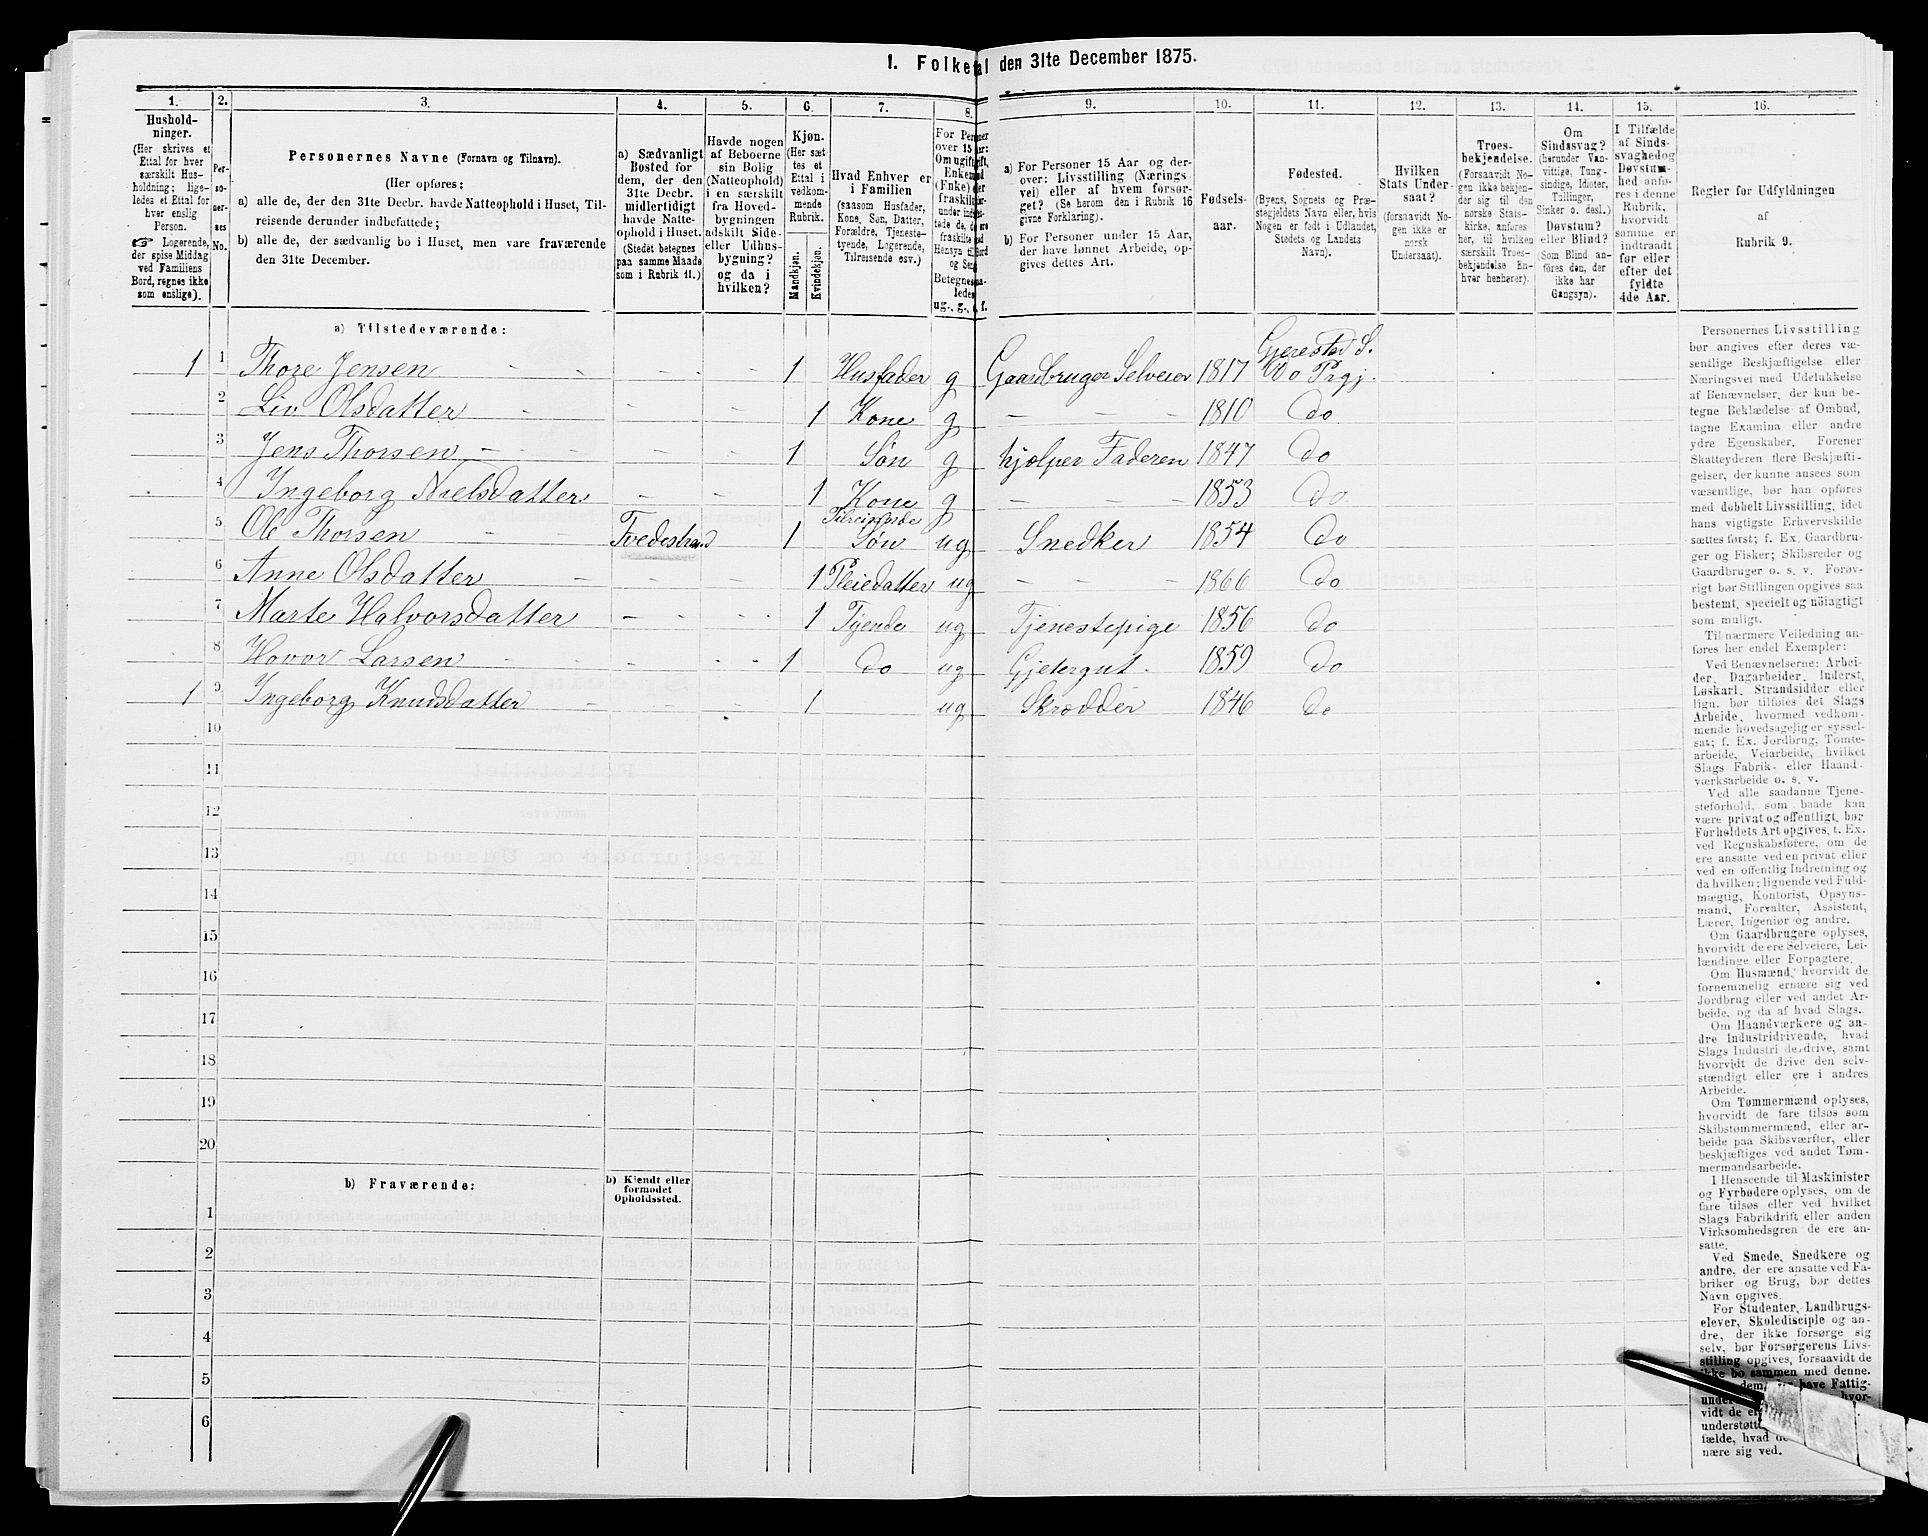 1. Folketal den 31te December 1875.
1. 2. 3. 4. 5. 6. 7. 8. 9. 10. 11. 12. 13. 14. 15. 16.
Hushold-
ninger.
(Her skrives et
Ettal for hver
særskilt Hus-
holdning; lige-
ledes et Ettal for
hver enslig
Person.
☞ Logerende,
der spise Middag
ved Familiens
Bord, regnes ikke
som enslige).
Per-
so-
ner-
nes
No.
Personernes Navne (Fornavn og Tilnavn).
(Her opføres:
a) alle de, der den 31te Decbr. havde Natteophold i Huset, Til-
reisende derunder indbefattede;
b) alle de, der sædvanlig bo i Huset, men vare fraværende
den 31te December.
a) Sædvanligt
Bosted for
dem, der den
31te Decbr.
midlertidigt
havde Natte-
ophold i Huset.
(Stedet betegnes
paa samme Maade
som i Rubrik 11.)
Havde nogen
af Beboerne
sin Bolig
(Natteophold)
i en særskilt
fra Hoved-
bygningen
adskilt Side-
eller Udhus-
bygning?
og da i
hvilken?
Kjøn.
(Her sæt-
tes et
Ettal i
vedkom-
mende
Rubrik.
Mandkjøn.
Kvindekjøn.
Hvad Enhver er
i Familien
(saasom Husfader,
Kone, Søn, Datter,
Forældre, Tjeneste-
tyende, Logerende,
Tilreisende osv.)
For Personer
over 15 Aar:
Om ugift, gift,
Enkemand
(Enke)
fraskilt
ug., g., e, f.
a) For Personer 15 Aar og der-
over: Livsstilling (Nærings-
vei) eller af hvem forsør-
get? (Se herom den i Rubrik 16
givne Forklaring).
b) For Personer under 15 Aar,
der have lønnet Arbeide, op-
gives dettes Art.
Fødsels-
aar.
Fødested.
(Byens, Sognets og Præ-
stegjeldets Navn eller, hvis
Nogen er født i Udlandet,
Stedets og Landets
Navn).
Hvilken
Stats Under-
saat?
(forsaavidt No-
gen ikke er
norsk
Undersaat).
Troes-
bekjendelse.
(Forsaavidt No-
gen ikke bekjen-
der sig til den
norske Stats-
kirke, anføres
her, til hvilken
særskilt Troes-
bekjendelse En-
hver henhører).
Om
Sindssvag?
(herunder Van-
vittige, Tung-
sindige, Idioter,
Tullinger,
Sinker o. desl.)
Døvstum?
eller Blind?
(Som Blind an-
føres den, der
ikke har
Gangsyn).
I Tilfælde
af Sinds-
svaghed og
Døvstum-
hed anfø-
res i denne
Rubrik,
hvorvidt
samme er
indtraadt
før eller
efter det
fyldte
4de Aar.
Regler for Udfyldningen
af
Rubrik 9.
a) Tilstedeværende:
Gjerestad S.
1 1 Thore Jensen 1 Husfader g Gaardbruger Selveier 1817 Do Prgj.
2 Liv Olsdatter 1 Kone g 1810 Do
3 Jens Thorsen 1 Søn g hjælper Faderen 1847 Do
4 Ingeborg Nielsdatter 1 Kone g 1853 Do
Tilreisende
5 Ole Thorsen Tvedestrand 1 Søn ug Snedker 1854 Do
6 Anne Olsdatter 1 Pleiedatter ug 1866 Do
7 Marte Halvorsdatter 1 Tyende ug Tjenestepige 1856 Do
8 Hovor Larsen 1 do ug Gjetergut 1859 Do
1 9 Ingeborg Knudsdatter 1 ug Skrædder 1846 Do
10
11
12
13
14
15
16
17
18
19
20
b) Fraværende:
b) Kjendt eller
formodet
Opholdssted.
1
2
3
4
5
6
Personernes Livsstilling
bør angives efter deres væ-
sentlige Beskjæftigelse eller
Næringsvei med Udelukkelse
af Benævnelser, der kun be-
tegne Beklædelse af Ombud,
tagne Examina eller andre
ydre Egenskaber. Forener
Skatteyderen flere Beskjæfti-
gelser, der kunne ansees som
væsentlige, bør han opføres
med dobbelt Livsstilling, idet
hans vigtigste Erhvervskilde
sættes først; f. Ex. Gaardbru-
ger og Fisker; Skibsreder og
Gaardbruger o. s. v. Forøv-
rigt bør Stillingen opgives saa
bestemt, specielt og nøiagtigt
som muligt.
Til nærmere Veiledning an-
føres her endel Exempler:
Ved Benævnelserne: Arbei-
der, Dagarbeider, Inderst,
Løskarl, Strandsidder eller
lign. bør tilføies det Slags
Arbeide, hvormed vedkom-
mende hovedsagelig er syssel-
sat; f. Ex. Jordbrug, Tomte-
arbeide, Veiarbeide, hvilket
Slags Fabrik- eller Haand-
værksarbeide o. s. v.
Ved alle saadanne Tjene-
steforhold, som baade kan
være privat og offentligt, bør
Forholdets Art opgives, t. Ex.
ved Regnskabsførere, om de
ere ansatte ved en privat eller
ved en offentlig Indretning og
da hvilken; lignende ved Fuld-
mægtig, Kontorist, Opsyns-
mand, Forvalter, Assistent,
Lærer, Ingeniør og andre.
Om Gaardbrugere oplyses,
hvorvidt de ere Selveiere, Lei-
lændinge eller Forpagtere.
Om Husmænd, hvorvidt de
fornemmelig ernære sig ved
Jordbrug eller ved andet Ar-
beide, og da af hvad Slags.
Om Haandværkere og an-
dre Industridrivende, hvad
Slags Industri de drive, samt
hvorvidt de drive den selv-
stændigt eller ere i andres
Arbeide.
Om Tømmermænd oplyses,
hvorvidt de fare tilsøs som
Skibstømmermænd, eller ar-
beide paa Skibsværfter, eller
beskjæftiges ved andet Tøm-
mermandsarbeide.
I Henseende til Maskinister
og Fyrbødere oplyses, om de
fare tilsøs eller ved hvilket
Slags Fabrikdrift eller anden
Virksomhedsgren de ere an-
satte.
Ved Smede, Snedkere og
andre, der ere ansatte ved Fa-
briker og Brug, bør dettes
Navn opgives.
For Studenter, Landbrugs-
elever, Skoledisciple og an-
dre, der ikke forsørge sig
selv, bør Forsørgerens Livs-
stilling opgives, forsaavidt de
ikke bo sammen med denne.
dem, have Fattig-
under hvor-
vidt de
understøtt
fælde, hvad
nære sig ved.